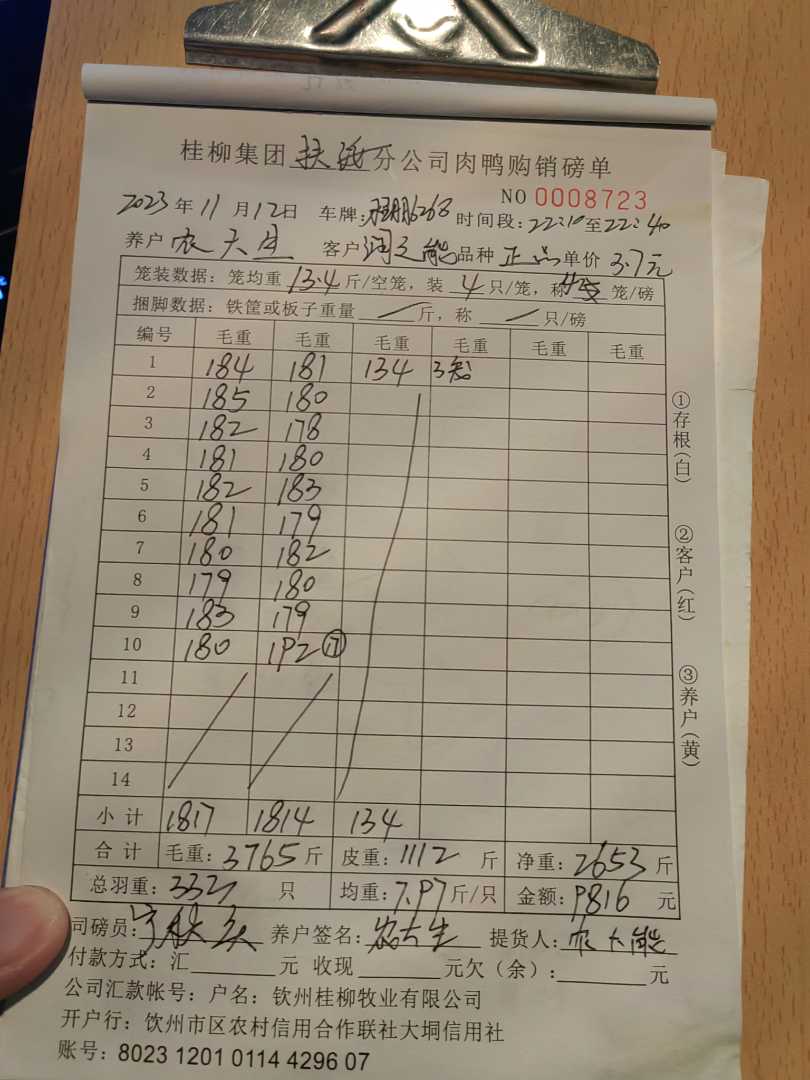 桂柳集团扶绥分公司肉鸭购销磅单
NO 0008723
2023年11月12日 车牌: 时间段:22:10至22:40
养户 农大生 客户 润之能 品种 正品 单价 3.7元
笼装数据：笼均重 13.4 斤/空笼，装 4 只/笼，称 笼/磅
捆脚数据：铁筐或板子重量 / 斤，称 / 只/磅
编号 毛重 毛重 毛重 毛重 毛重 毛重
1 184 181 134 3笼
2 185 180
3 182 178
4 181 180
5 182 183
6 181 179
7 180 182
8 179 180
9 183 179
10 180 192 ⑰
11
12
13
14
小计 1817 1814 134
合计 毛重：3765斤 皮重：1112斤 净重：2653斤
总羽重：333只 均重：7.97斤/只 金额：9816元
司磅员： 养户签名：农大生 提货人：
付款方式：汇 元 收现 元欠（余）： 元
公司汇款帐号：户名：钦州桂柳牧业有限公司
开户行：钦州市区农村信用合作联社大垌信用社
账号：8023 1201 0114 4296 07
①存根(白)
②客户(红)
③养户(黄)